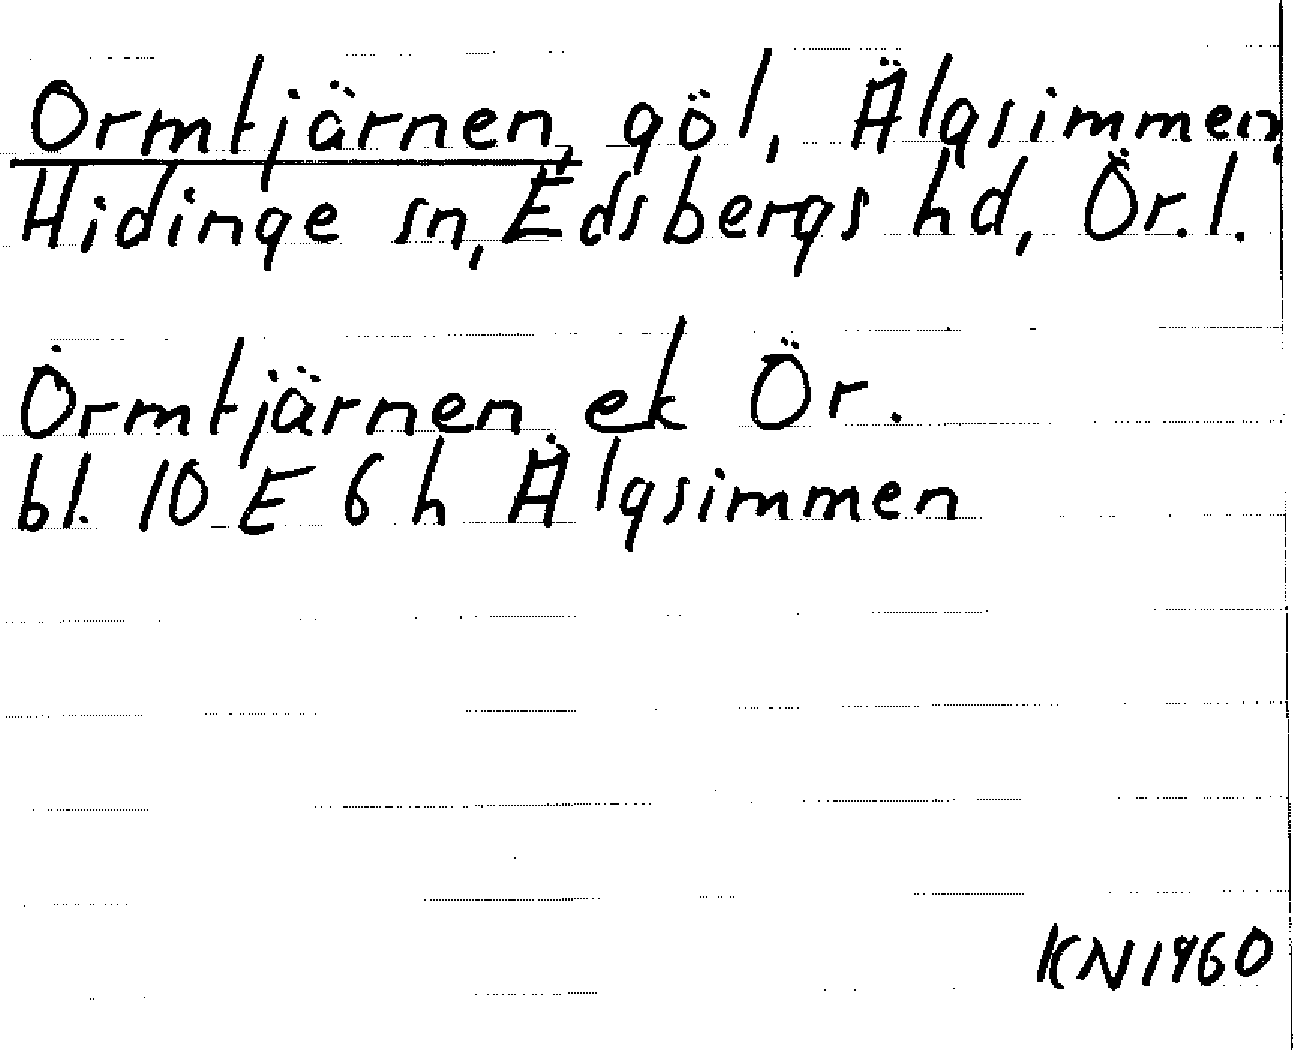 Ormtjärnen, göl, Älgsimmen,
Hidinge sn, Edsbergs hd, Ör. l.
Ormtjärnen ek Ör.
bl. 10 E 6 h Älgsimmen
KN1960